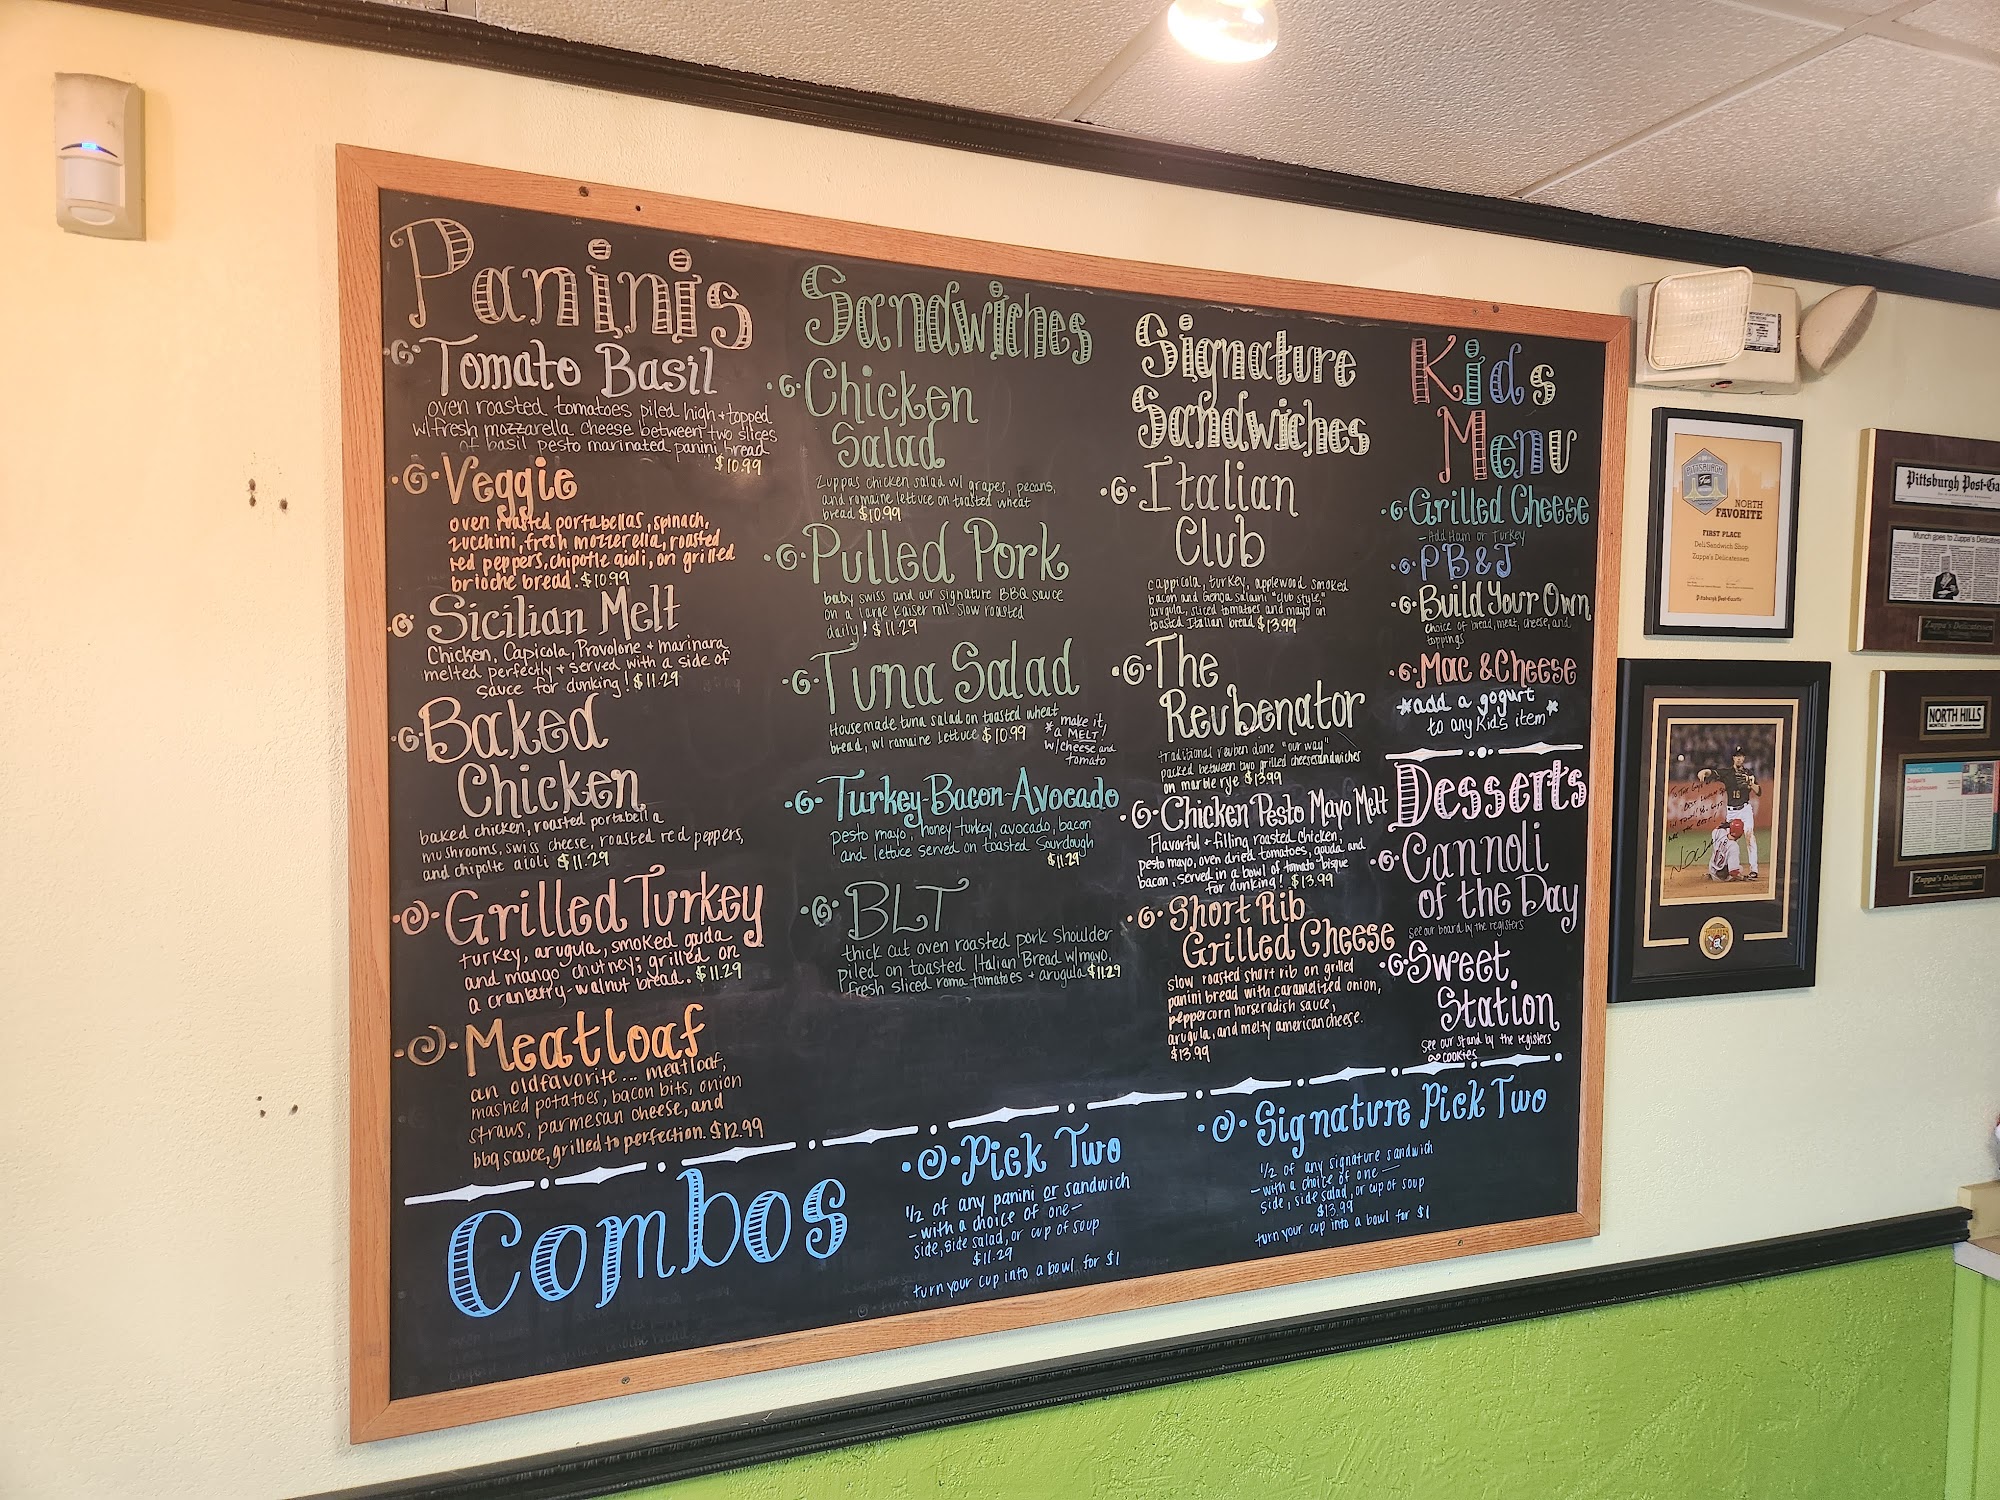 Paninis
Tomato Basil
oven roasted tomatoes piled high + topped
w/fresh mozzarella cheese between two slices
of basil pesto marinated panini bread
$10.99
Veggie
oven roasted portabellas, spinach,
zucchini, fresh mozzerella, roasted
red peppers, chipotle aioli, on grilled
brioche bread. $10.99
Sicilian Melt
Chicken, Capicola, Provolone + marinara
melted perfectly + served with a side of
sauce for dunking! $11.29
Baked
Chicken
baked chicken, roasted portabella
mushrooms, swiss cheese, roasted red peppers,
and chipolte aioli $11.29
Grilled Turkey
turkey, arugula, smoked gouda
and mango chutney; grilled on
a cranberry-walnut bread. $11.29
Meatloaf
an old favorite... meatloaf,
mashed potatoes, bacon bits, onion
straws, parmesan cheese, and
bbq sauce, grilled to perfection. $12.99
Sandwiches
Chicken
Salad
Zuppas chicken salad w/ grapes, pecans,
and romaine lettuce on toasted wheat
bread $10.99
Pulled Pork
baby swiss and our signature BBQ sauce
on a large Kaiser roll slow roasted
daily! $11.29
Tuna Salad
Housemade tuna salad on toasted wheat
bread, w/ romaine lettuce $10.99
*make it
a MELT!
w/cheese and
tomato
Turkey-Bacon-Avocado
pesto mayo, honey turkey, avocado, bacon
and lettuce served on toasted Sourdough
$11.29
BLT
thick cut oven roasted pork shoulder
piled on toasted Italian Bread w/mayo,
fresh sliced roma tomatoes + arugula $11.29
Signature
Sandwiches
Italian
Club
cappicola, turkey, applewood smoked
bacon and Genoa salami "club style,"
arugula, sliced tomatoes and mayo on
toasted Italian bread $13.99
The
Reubenator
traditional reuben done "our way"
packed between two grilled cheesesandwiches
on marble rye $13.99
Chicken Pesto Mayo Melt
Flavorful + filling roasted chicken,
pesto mayo, oven dried tomatoes, gouda and
bacon, served in a bowl of tomato bisque
for dunking! $13.99
Short Rib
Grilled Cheese
slow roasted short rib on grilled
panini bread with caramelized onion,
peppercorn horseradish sauce,
arugula, and melty american cheese.
$13.99
Kids
Menu
Grilled Cheese
- Add Ham or Turkey
PB&J
Build Your Own
choice of bread, meat, cheese, and
toppings
Mac & Cheese
*add a gogurt
to any Kids item*
Desserts
Cannoli
of the Day
see our board by the registers
Sweet
Station
see our stand by the registers
~ cookies
Combos
Pick Two
1/2 of any panini or sandwich
- with a choice of one -
side, side salad, or cup of soup
$11.29
turn your cup into a bowl for $1
Signature Pick Two
1/2 of any signature sandwich
- with a choice of one -
side, side salad, or cup of soup
$13.99
turn your cup into a bowl for $1
PITTSBURGH
NORTH
FAVORITE
FIRST PLACE
Deli/Sandwich Shop
Zuppa's Delicatessen
Pittsburgh Post-Gazette
Pittsburgh Post-Ga
Munch goes to Zuppa's Delicatess
Zuppa's Delicatessen
NORTH HILLS
Zuppa's
Delicatessen
Zuppa's Delicatessen